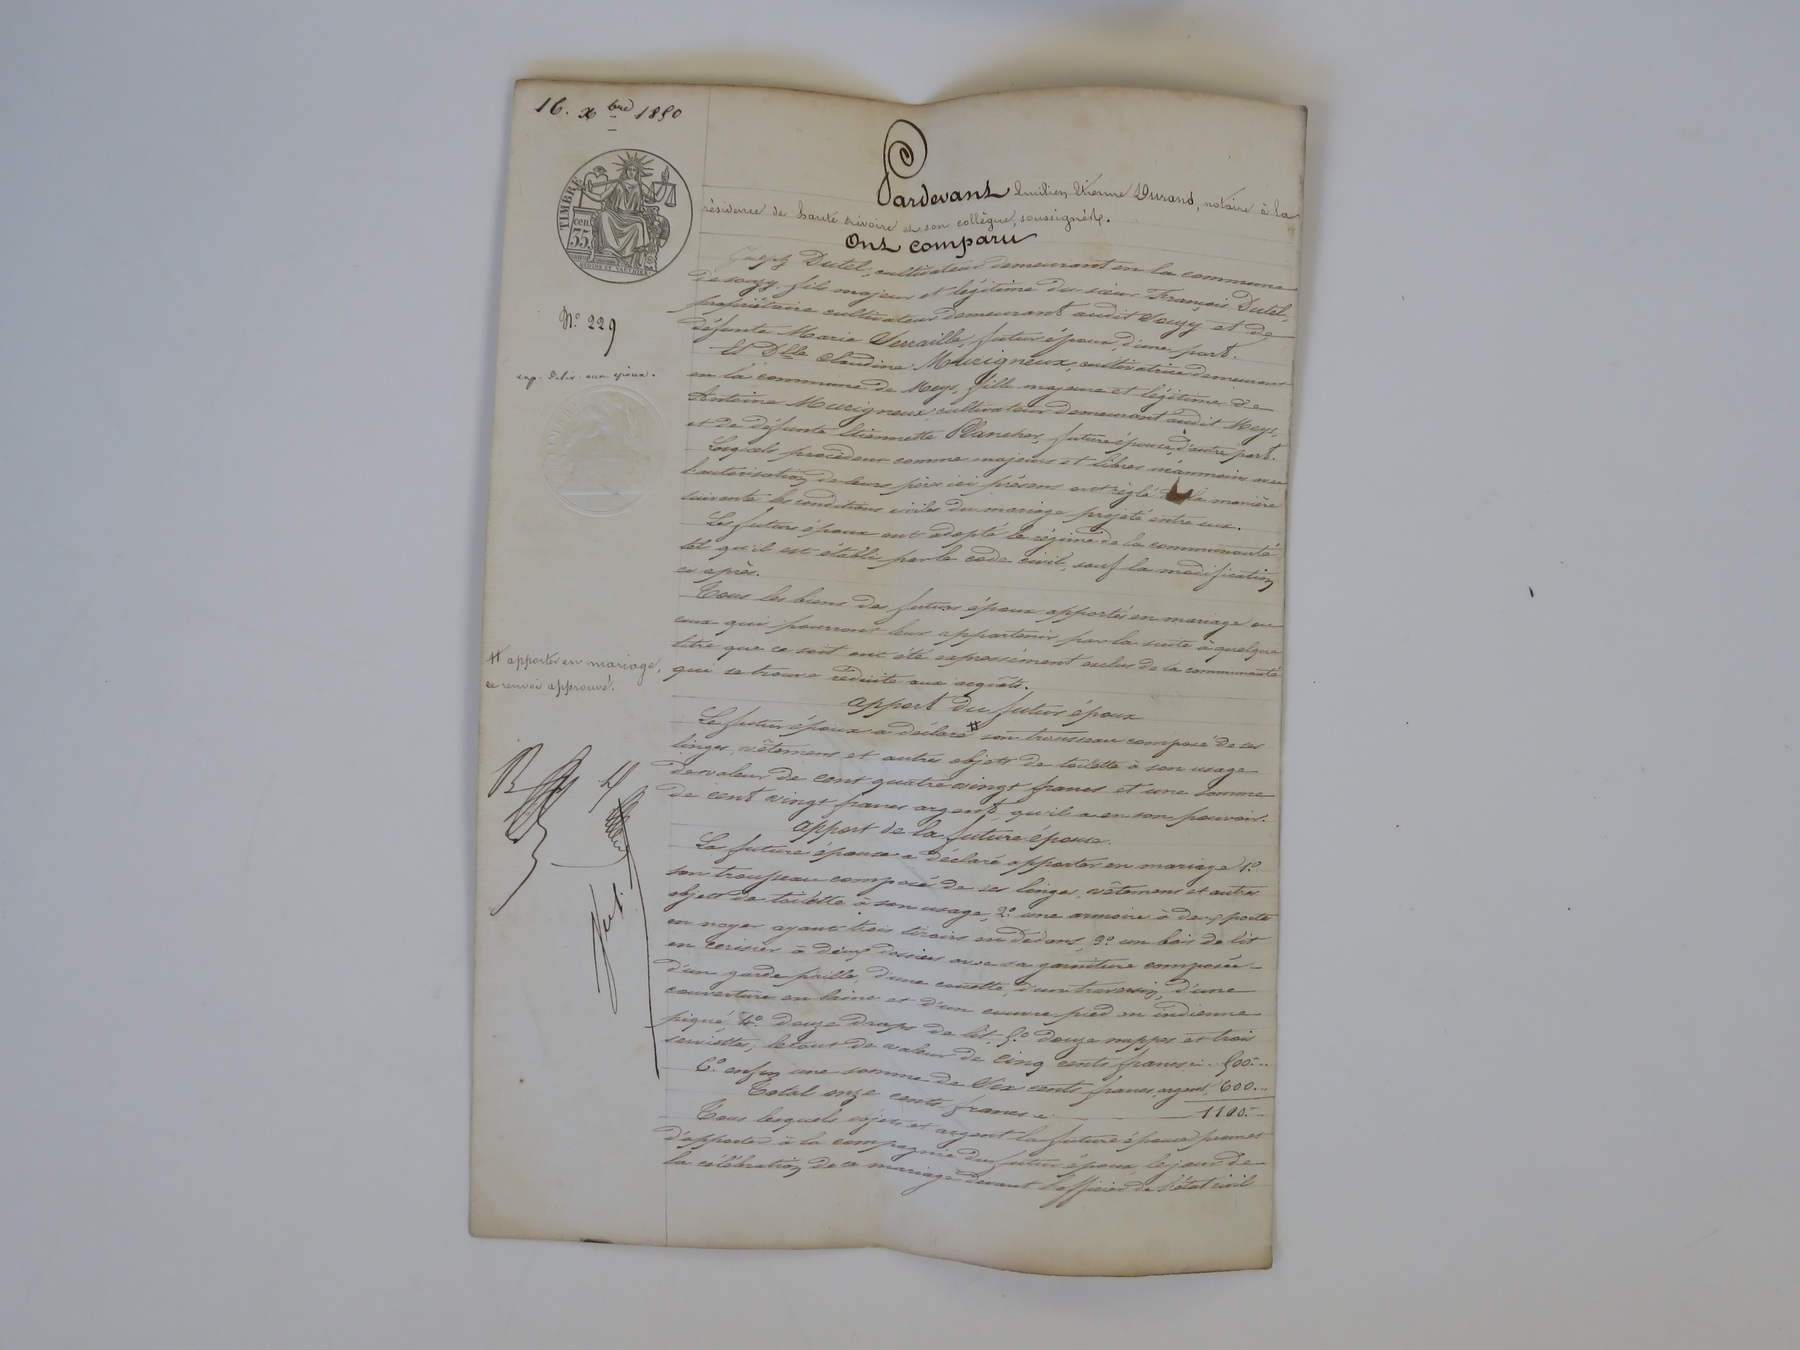 16. Xbre 1850
TIMBRE
cen.
35.
Pardevant Emilien Etienne Durand, notaire à la
résidence de haute rivoire et son collègue, soussignés.
Ont comparu
N° 229
exp. deliv. aux époux.
Joseph Dutel, cultivateur demeurant en la commune
de souzy, fils majeur et légitime du sieur François Dutel,
propriétaire cultivateur demeurant audit Souzy et de
défunte Marie Verraille, futur époux, d'une part.
Et Dlle Claudine Murigneux, cultivatrice demeurant
en la commune de Meys, fille majeure et légitime de
Antoine Murigneux, cultivateur demeurant audit Meys,
et de défunte Etiennette Planchet, future épouse, d'autre part.
Lesquels procédent comme majeurs et libres néanmoins avec
l'autorisation de leurs pères ici présens ont règlé de la manière
suivante les conditions civiles du mariage projeté entre eux.
Les futurs époux ont adopté le régime de la communauté
tel qu'il est établi par le code civil, sauf la modification
ci après.
Tous les biens des futurs époux apportés en mariage ou
ceux qui pourront leur appartenir par la suite à quelque
titre que ce soit ont été expressément exclus de la communauté
qui se trouve réduite aux acquêts.
# apporter en mariage,
ce renvoi approuvé.
apport du futur époux
Le futur époux a déclaré # son trousseau composé de ses
linges, vêtemens et autres objets de toilette à son usage
de valeur de cent quatre vingt francs et une somme
de cent vingt francs argent, qu'il a en son pouvoir.
apport de la future épouse.
La future épouse a déclaré apporter en mariage 1°
son trousseau composé de ses linges, vêtemens et autres
objets de toilette à son usage, 2° une armoire à deux portes
en noyer ayant trois tiroirs en dedans, 3° un bois de lit
en cerisier à deux dossiers avec sa garniture composée
d'un garde paille, d'une couette, d'un traversin, d'une
couverture en laine et d'un couvre pied en indienne
piqué 4° douze draps de lit, 5° douze nappes et trois
serviettes, le tout de valeur de cinq cents francs ci. 500.
6° enfin une somme de six cents francs argent, 600.
Total onze cents francs ci. 1100.
Tous lesquels objets et argent la future épouse promet
d'apporter à la compagnie du futur époux, le jour de
la célébration de ce mariage devant l'officier de l'état civil